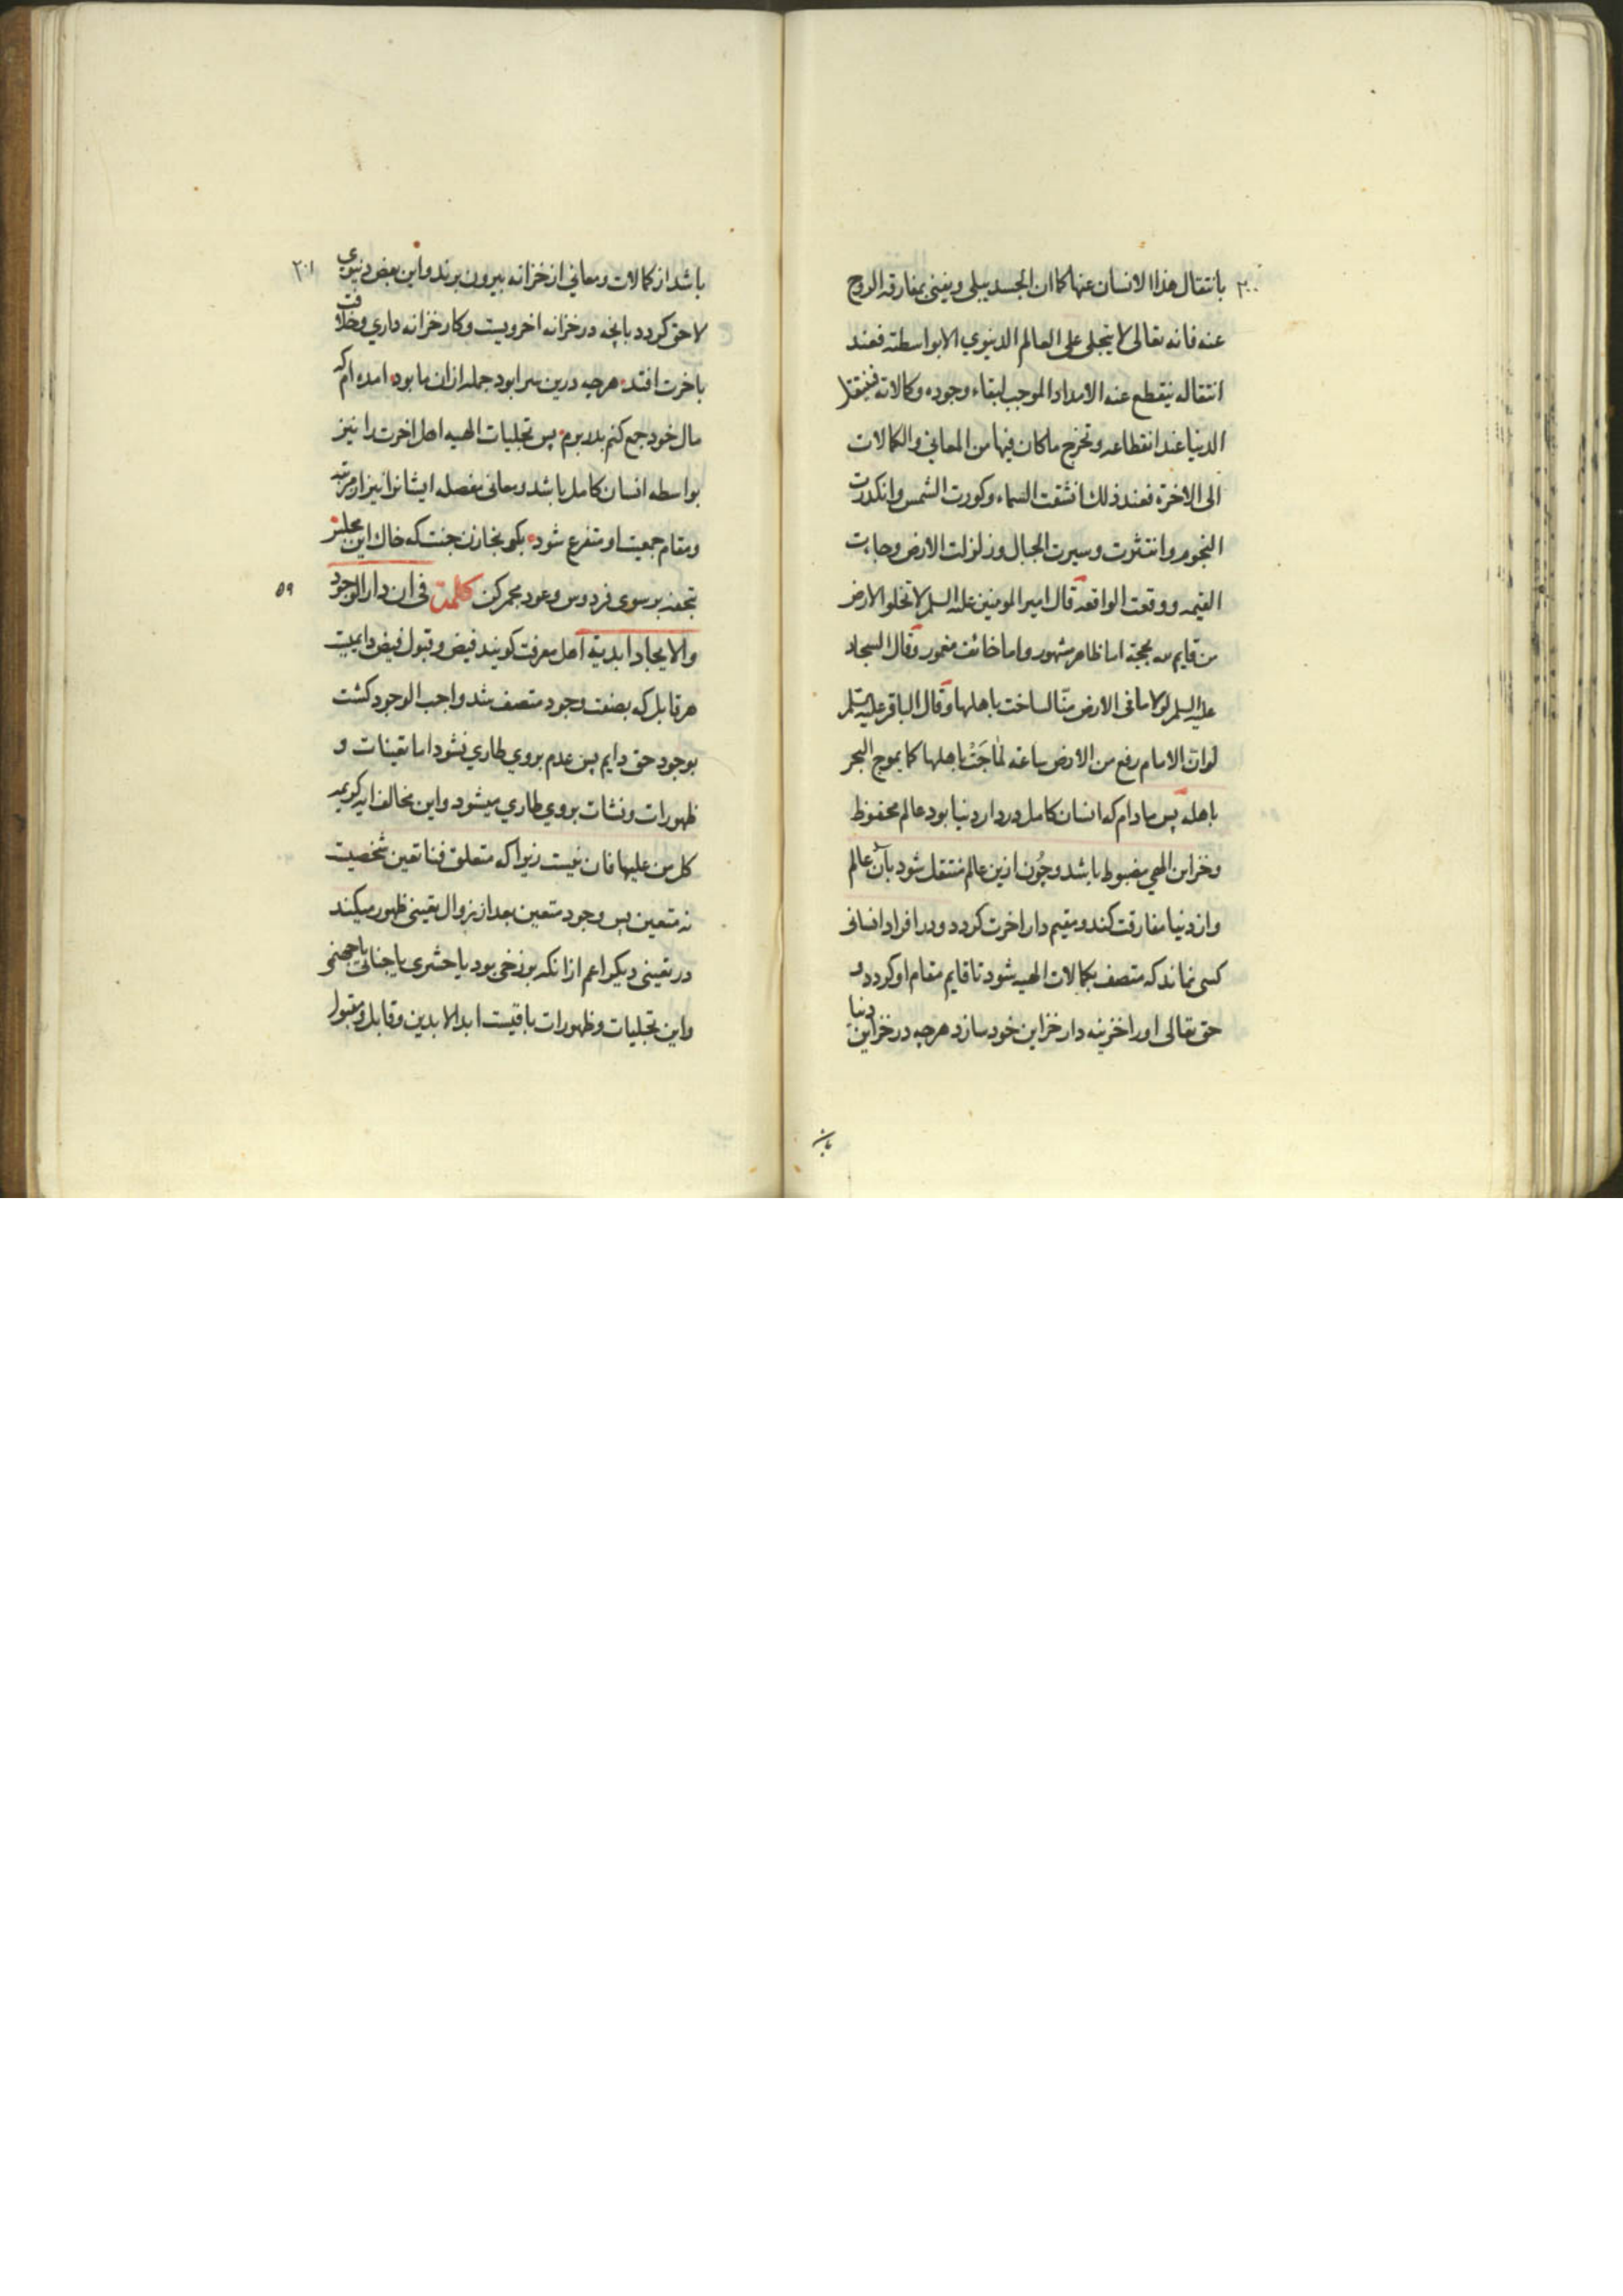 ٢٠٠
بانتقال هذا الانسان عنها كما ان الجسد يبلى ويفنى بمفارقه الروح
عنه فانه تعالى لا يتجلى على العالم الدنيوي الا بواسطته فعند
انتقاله ينقطع عنه الامداد الموجب لبقاء وجوده وكالاته فينتقل
الدنيا عند انقطاعه وتخرج ماكان فيها من المعاني والكمالات
الى الاخرة فعند ذلك انشقت السماء وكورت الشمس وانكدرت
النجوم وانتثرت وسيرت الجبال وزلزلت الارض وجاءت
القيمه ووقعت الواقعه قال امير المومنين عليه السلم لا تخلو الارض
من قايم لله بحجة اما ظاهر مشهور واما خائف مغمور وقال السجاد
عليه السلم لولا ما فى الارض منّا لساخت باهلها وقال الباقر عليه السلم
لوان الامام رفع من الارض ساعه لماجَتْ باهلها كما يموج البحر
باهله پس مادام كه انسان كامل در دار دنيا بود عالم محفوظ
وخزاين الهي مضبوط باشد وچُون ازين عالم منتقل شود بآن عالم
واز دنيا مفارقت كند ومقيم دار اخرت كردد ودر افراد انسانى
كسى نماند كه متصف بكمالات الهيه شود تا قايم مقام او كردد و
حق تعالى اورا خزينه دار خزاين خود سازد هرچه در خزاين دنيا
٢٠١
باشد از كمالات ومعاني از خزانه بيرون برند واين بعض دنيوي
لاحق كردد بانچه در خزانه اخرويست وكار خزانه داري وخلافت
باخرت افتد هرچه درين سرا بود جمله ازان ما بود امده ام كه
مال خود جمع كنم بدر برم پس تجليات الهيه اهل اخرت را نيز
بواسطه انسان كامل باشد ومعانى مفصله ايشانرا نيز از مرتبه
ومقام جمعيت او متفرع شود بكو بخازن جنت كه خاك اين مجلس
بتحفه بر سوى فردوس وعود مجمر كن كلمة فى ان دار الوجود
٥٩
والايجاد ابدية اهل معرفت كويند فيض وقبول فيض دايميت
هر قابل كه بصفت وجود متصف شد واجب الوجود كشت
بوجود حق دايم پس عدم بروي طاري نشود اما تعينات و
ظهورات ونشات بروي طاري ميشود واين مخالف ايه كريمه
كل من عليها فان نيست زيرا كه متعلق فنا تعين شخصيت
نه متعين پس وجود متعين بعد از زوال تعينى ظهور ميكند
در تعينى ديكر اعم ازانكه برزخى بود يا حشرى يا جنانى يا جهنمى
واين تجليات وظهورات باقيست ابد الابدين وقابل ومقبول